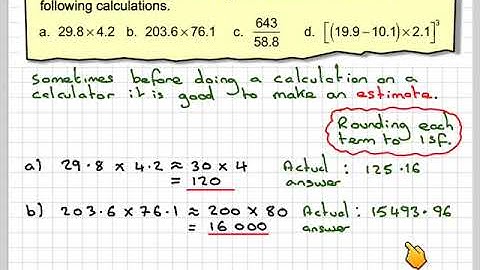 following calculations.
a. 29.8 × 4.2 b. 203.6 × 76.1 c. 643/58.8 d. [(19.9 − 10.1) × 2.1]³
sometimes before doing a calculation on a
calculator it is good to make an estimate.
Rounding each
term to 1sf.
a) 29.8 × 4.2 ≈ 30 × 4 Actual : 125.16
= 120 answer
b) 203.6 × 76.1 ≈ 200 × 80 Actual : 15493.96
= 16 000 answer